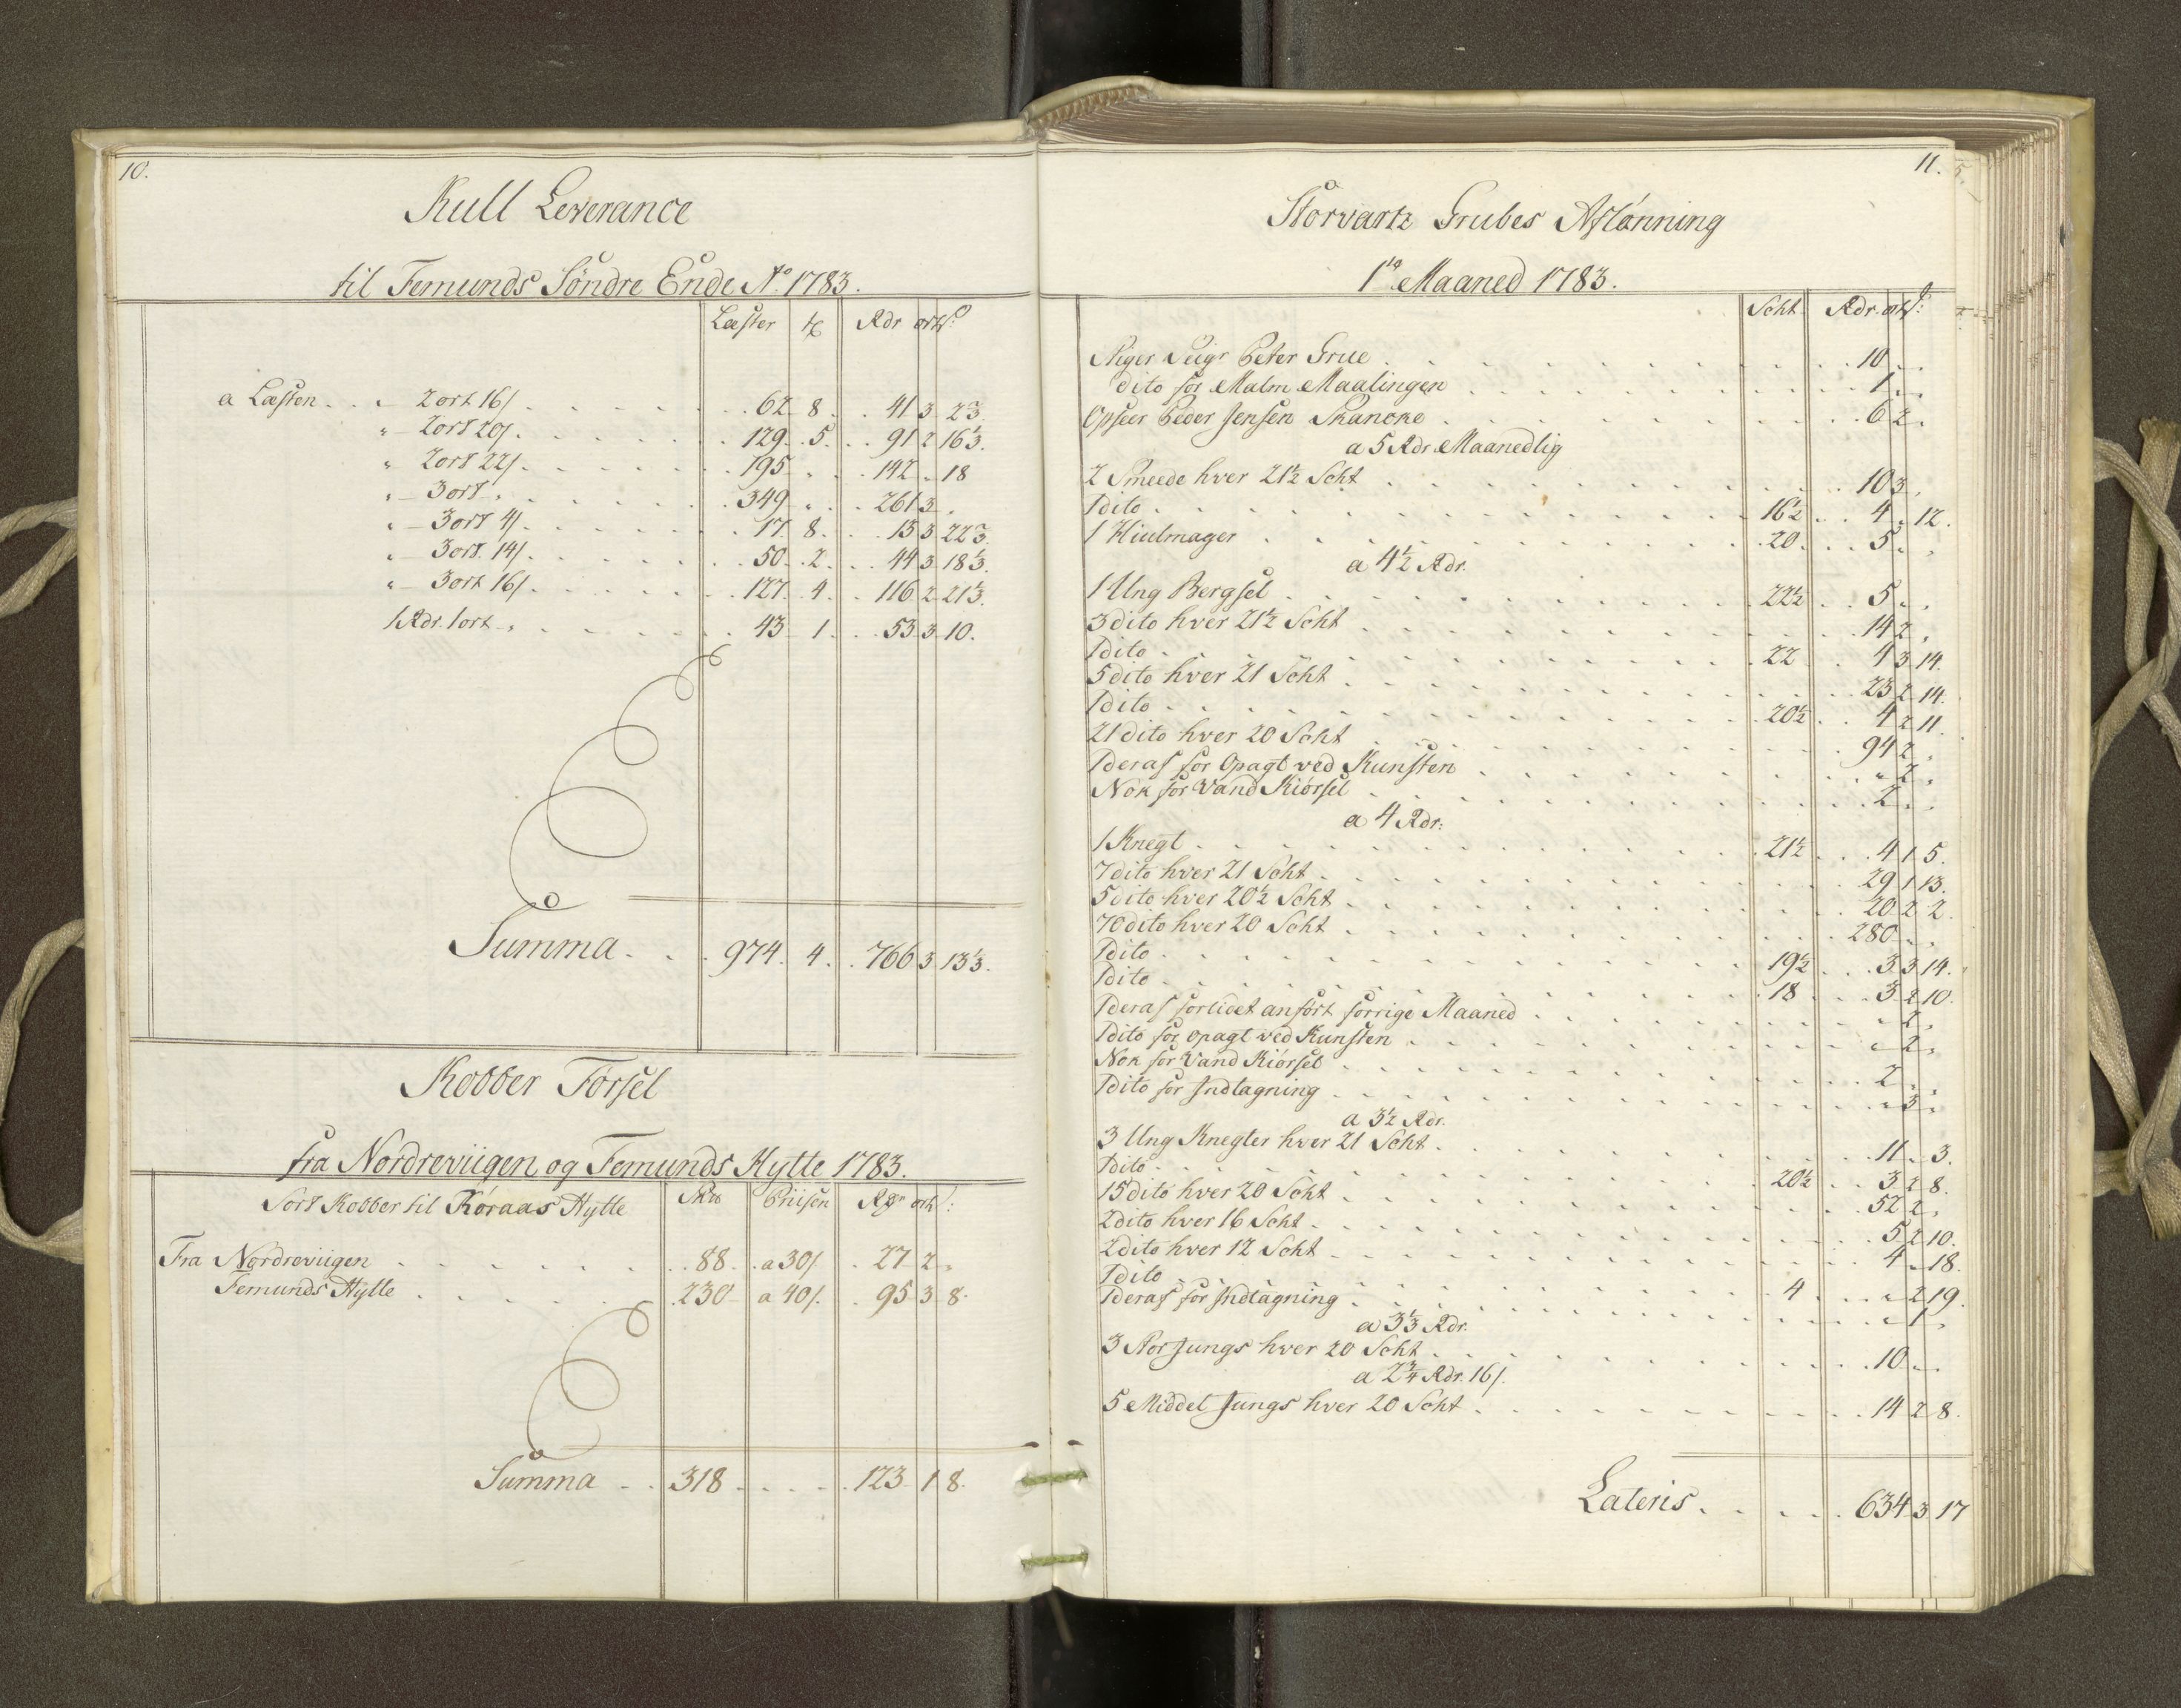 10.
Kull Leverance
til Femunds Söndre Ende Aº 1783.
Læster tr Rdr ort ſ:
a Læsten . . „ 2 ort 16 ſ . . 62 8 . . 41 3 2 2/3.
„ 2 ort 20 ſ . . 129 . 5 . . 91 2 16 1/3.
„ 2 ort 22 ſ . . 195 „ . . 142 „ 18
„ 3 ort „ . . 349 „ . . 261 3 „
„ 3 ort 4 ſ . . 17 8 . . 13 3 22 2/3.
„ 3 ort 14 ſ . . 50 . 2 . . 44 3 18 1/3.
„ 3 ort 16 ſ . . 127 . 4 . . 116 2 21 1/3.
1 Rdr 1 ort „ . . 43 1 . . 53 3 10.
Summa . . 974 . 4 . . 766 3 13 1/3.
Kobber Försel
fra Nordreviigen og Femunds Hytte 1783.
Sort Kobber til Röraas Hytte Priisen ort ſ:
Fra Nordreviigen . . 88 . a 30 ſ . 27 2 „
Femunds Hytte . . 230 a 40 ſ . 95 3 8.
Summa . . 318 . . . . 123 1 8.
11.
Storvartz Grubes Aflönning
1te Maaned 1783.
Scht Rdr ort ſ:
Stiger Seigr Peter Grue . . 10 „ „
dito for Malm Maalingen . . 1 „ „
Opseer Peder Jensen Skancke . . 6 2 „
a 5 Rdr Maanedlig
2 Smeede hver 21 1/2 Scht . . 10 3 „
1 dito . . 16 1/2 . . 4 „ 12.
1 Hiulmager . . 20 . . 5 „ „
a 4 1/2 Rdr.
1 Ung Bergsel . . 22 1/2 . . 5 „ „
3 dito hver 21 1/2 Scht . . 14 2 „
1 dito . . 22 . . 4 3 14.
5 dito hver 21 Scht . . 23 2 14.
1 dito . . 20 1/2 . . 4 2 11.
21 dito hver 20 Scht . . 94 2 „
1 deraf for Opagt ved Kunsten . . „ 2 „
Nok for Vand Kiörsel . . 2 „ „
a 4 Rdr:
1 Knegt . . 21 1/2 . . 4 1 5.
7 dito hver 21 Scht . . 29 1 13.
5 dito hver 20 1/2 Scht . . 20 2 2.
70 dito hver 20 Scht . . 280 „ „
1 dito . . 19 1/2 . . 3 3 14.
1 dito . . 18 . . 3 2 10.
1 deraf forlidet anfört forrige Maaned . . „ 2 „
1 dito for opagt ved Kunsten . . „ 2 „
Nok for Vand Kiörsel . . 2 „ „
1 dito for Indtagning . . „ 3 „
a 3 1/2 Rdr.
3 Ung Knegter hver 21 Scht . . 11 „ 3.
1 dito . . 20 1/2 . . 3 2 8.
15 dito hver 20 Scht . . 52 2 „
2 dito hver 16 Scht . . 5 2 10.
2 dito hver 12 Scht . . 4 „ 18.
1 dito . . 4 . . „ 2 19.
1 deraf for Indtagning . . „ 1 „
a 3 1/3 Rdr.
3 Storjungs hver 20 Scht . . 10 „ „
a 2 3/4 Rdr. 16 ſ.
5 Middel Jungs hver 20 Scht . . 14 2 8.
Lateris . . 634 3 17